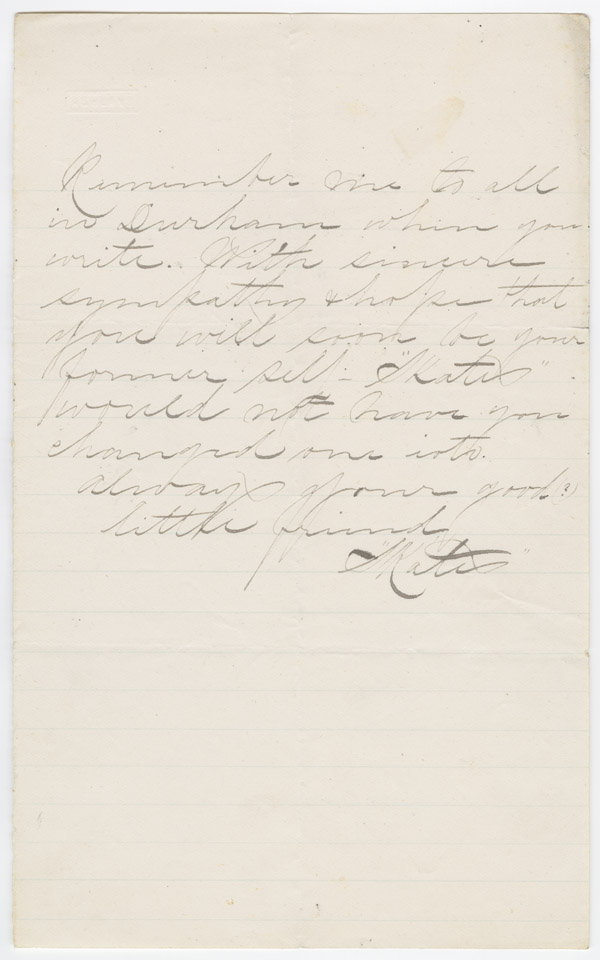 Remember me to all
in Durham when you
write. With sincere
sympathy & hope that
you will soon be your
former self - "Kate"
would not have you
changed one iota.
always your good (?)
little friend
"Kate"